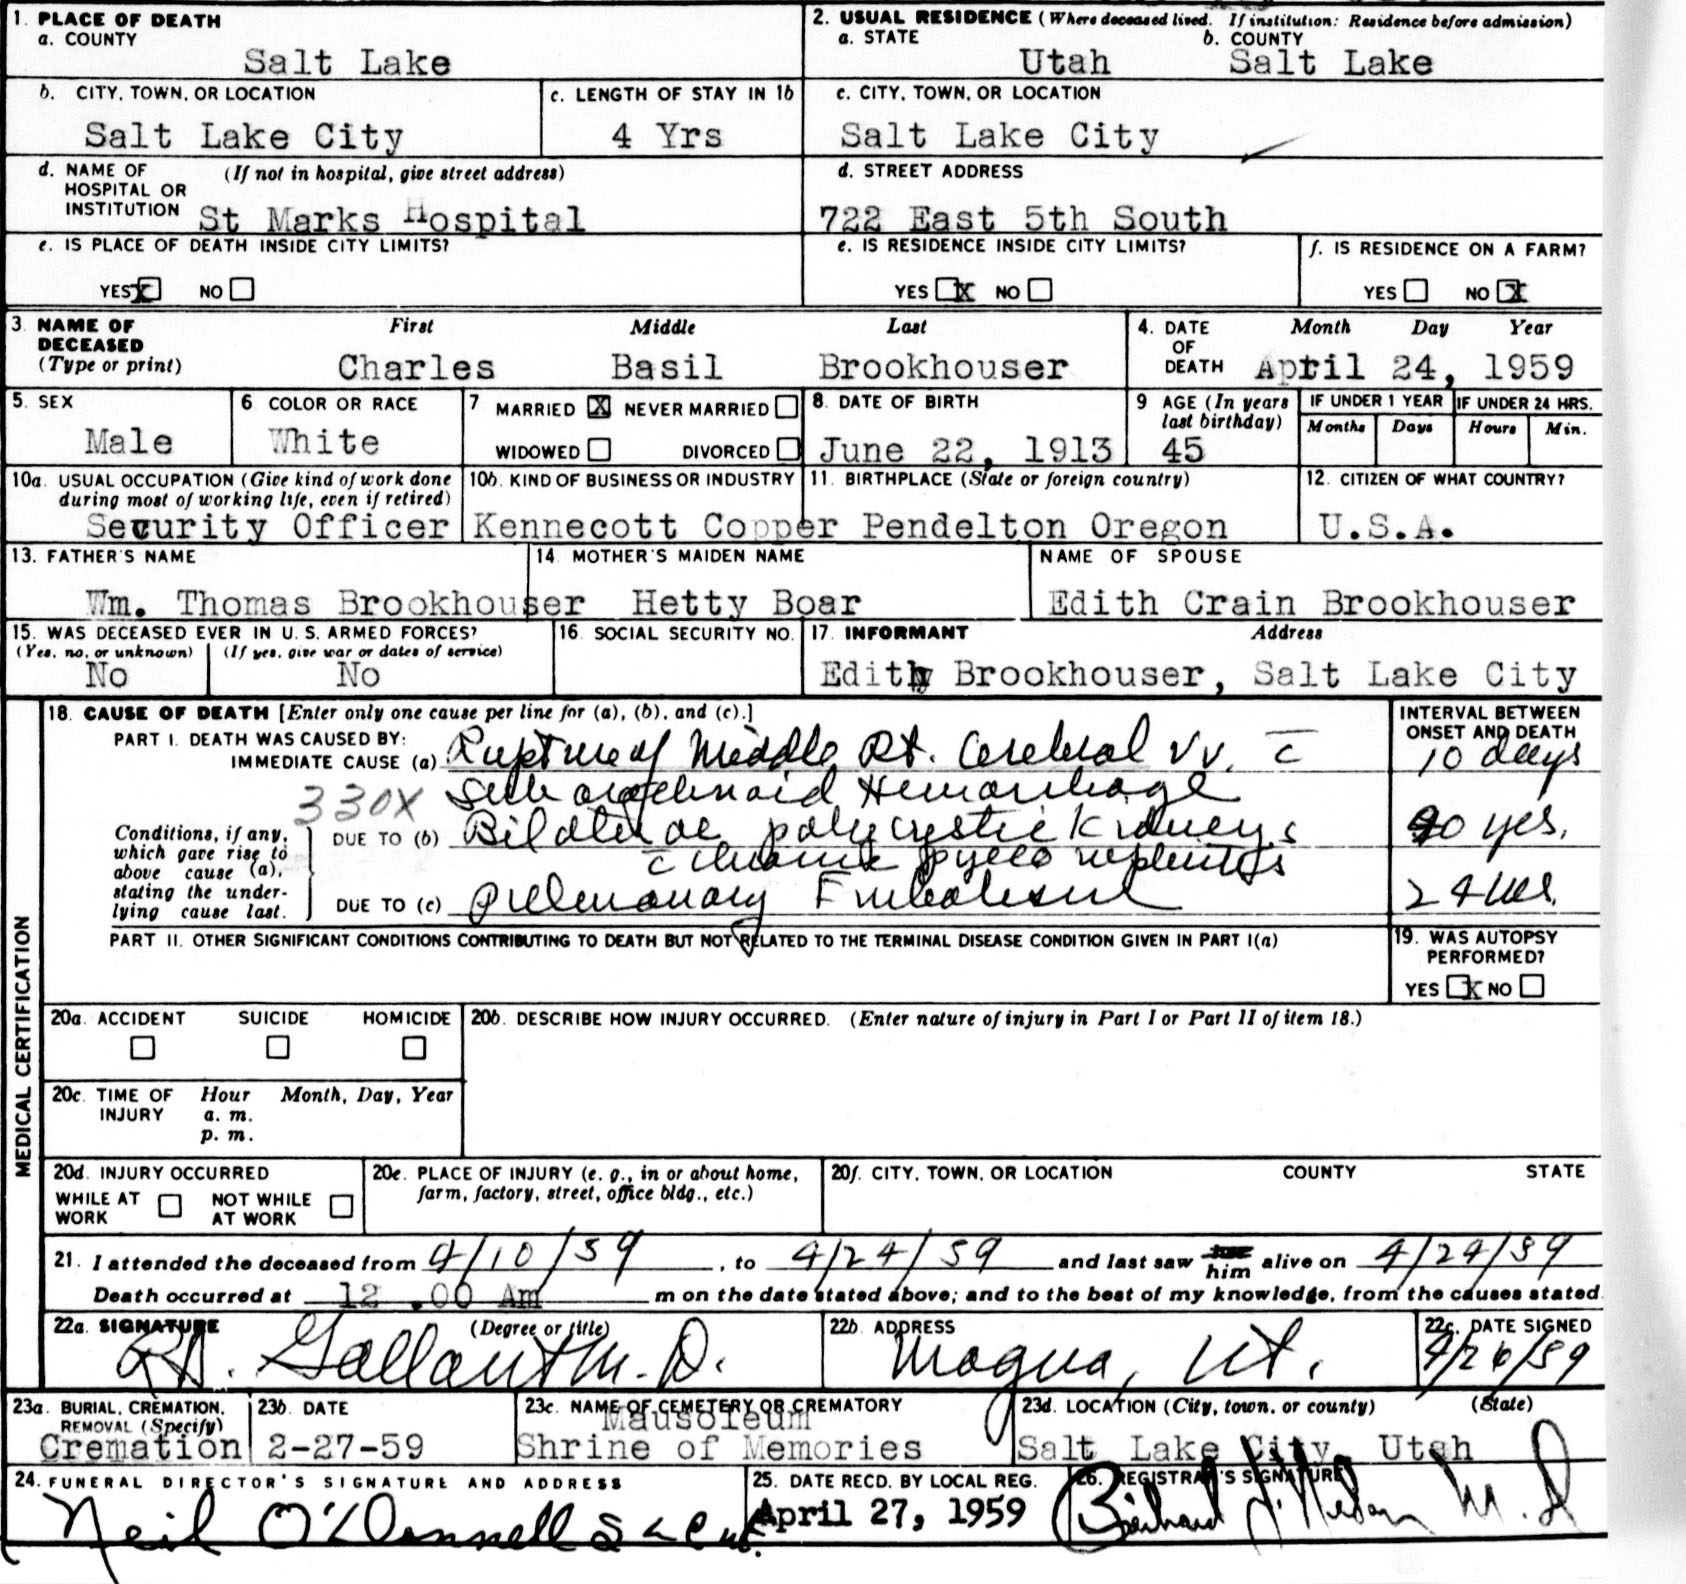 1. PLACE OF DEATH
a. COUNTY
Salt Lake
2. USUAL RESIDENCE (Where deceased lived. If institution: Residence before admission)
a. STATE
Utah
b. COUNTY
Salt Lake
b. CITY, TOWN, OR LOCATION
Salt Lake City
c. LENGTH OF STAY IN 1b
4 Yrs
c. CITY, TOWN, OR LOCATION
Salt Lake City
d. NAME OF HOSPITAL OR INSTITUTION
(If not in hospital, give street address)
St Marks Hospital
d. STREET ADDRESS
722 East 5th South
e. IS PLACE OF DEATH INSIDE CITY LIMITS?
YES X NO
e. IS RESIDENCE INSIDE CITY LIMITS?
YES X NO
f. IS RESIDENCE ON A FARM?
YES NO X
3. NAME OF DECEASED
(Type or print)
First Middle Last
Charles Basil Brookhouser
4. DATE OF DEATH
Month Day Year
April 24, 1959
5. SEX
Male
6 COLOR OR RACE
White
7 MARRIED X NEVER MARRIED
WIDOWED DIVORCED
8. DATE OF BIRTH
June 22, 1913
9 AGE (In years last birthday)
45
IF UNDER 1 YEAR
Months Days
IF UNDER 24 HRS.
Hours Min.
10a. USUAL OCCUPATION (Give kind of work done
during most of working life, even if retired)
Security Officer
10b. KIND OF BUSINESS OR INDUSTRY
Kennecott Copper
11. BIRTHPLACE (State or foreign country)
Pendelton Oregon
12. CITIZEN OF WHAT COUNTRY?
U.S.A.
13. FATHER'S NAME
Wm. Thomas Brookhouser
14 MOTHER'S MAIDEN NAME
Hetty Boar
NAME OF SPOUSE
Edith Crain Brookhouser
15. WAS DECEASED EVER IN U. S. ARMED FORCES?
(Yes, no, or unknown) (If yes, give war or dates of service)
No No
16. SOCIAL SECURITY NO.
17. INFORMANT Address
Edith Brookhouser, Salt Lake City
MEDICAL CERTIFICATION
18. CAUSE OF DEATH [Enter only one cause per line for (a), (b), and (c).]
PART I. DEATH WAS CAUSED BY:
IMMEDIATE CAUSE (a) Rupture of Middle Rt. Cerebral vv. c̄
Subarachnoid Hemorrhage
330X
INTERVAL BETWEEN ONSET AND DEATH
10 days
Conditions, if any,
which gave rise to
above cause (a),
stating the under-
lying cause last.
DUE TO (b) Bilateral polycystic kidneys
c̄ chronic pyelo nephritis
DUE TO (c) Pulmonary Embolism
PART II. OTHER SIGNIFICANT CONDITIONS CONTRIBUTING TO DEATH BUT NOT RELATED TO THE TERMINAL DISEASE CONDITION GIVEN IN PART I(a)
19. WAS AUTOPSY PERFORMED?
YES X NO
20a. ACCIDENT SUICIDE HOMICIDE
20b. DESCRIBE HOW INJURY OCCURRED. (Enter nature of injury in Part I or Part II of item 18.)
20c. TIME OF INJURY
Hour Month, Day, Year
a. m.
p. m.
20d. INJURY OCCURRED
WHILE AT WORK NOT WHILE AT WORK
20e. PLACE OF INJURY (e. g., in or about home,
farm, factory, street, office bldg., etc.)
20f. CITY, TOWN, OR LOCATION COUNTY STATE
21. I attended the deceased from 4/10/59, to 4/24/59 and last saw him alive on 4/24/59
Death occurred at 12.00 Am m on the date stated above; and to the best of my knowledge, from the causes stated
22a. SIGNATURE (Degree or title)
Gallant M.D.
22b. ADDRESS
Magna, Ut.
22c. DATE SIGNED
4/26/59
23a. BURIAL, CREMATION, REMOVAL (Specify)
Cremation
23b. DATE
2-27-59
23c. NAME OF CEMETERY OR CREMATORY
Mausoleum
Shrine of Memories
23d. LOCATION (City, town, or county) (State)
Salt Lake City Utah
24. FUNERAL DIRECTOR'S SIGNATURE AND ADDRESS
Neil O'Donnell
25. DATE RECD. BY LOCAL REG.
April 27, 1959
26. REGISTRAR'S SIGNATURE
M.D.